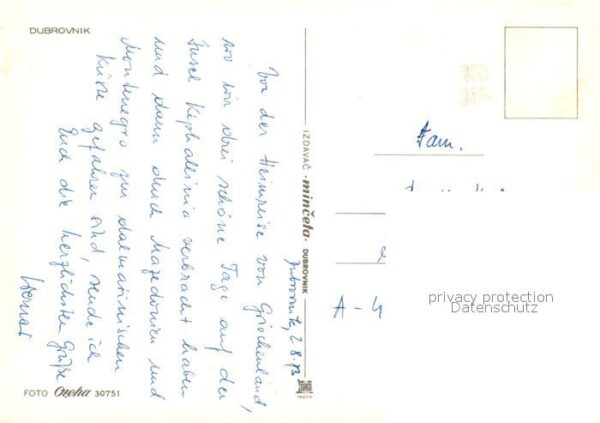 DUBROVNIK
Dubrovnik, 2.8.73
Von der Heimreise von Griechenland,
wo wir drei schöne Tage auf der
Insel Kephallinia verbracht haben
und dann durch Mazedonien und
Montenegro zur dalmatinischen
Küste gefahren sind, sende ich
Euch die herzlichsten Grüße
Werner
FOTO Ozeha 30751
IZDAVAČ "minčeta" DUBROVNIK
Fam.
A-4
privacy protection
Datenschutz